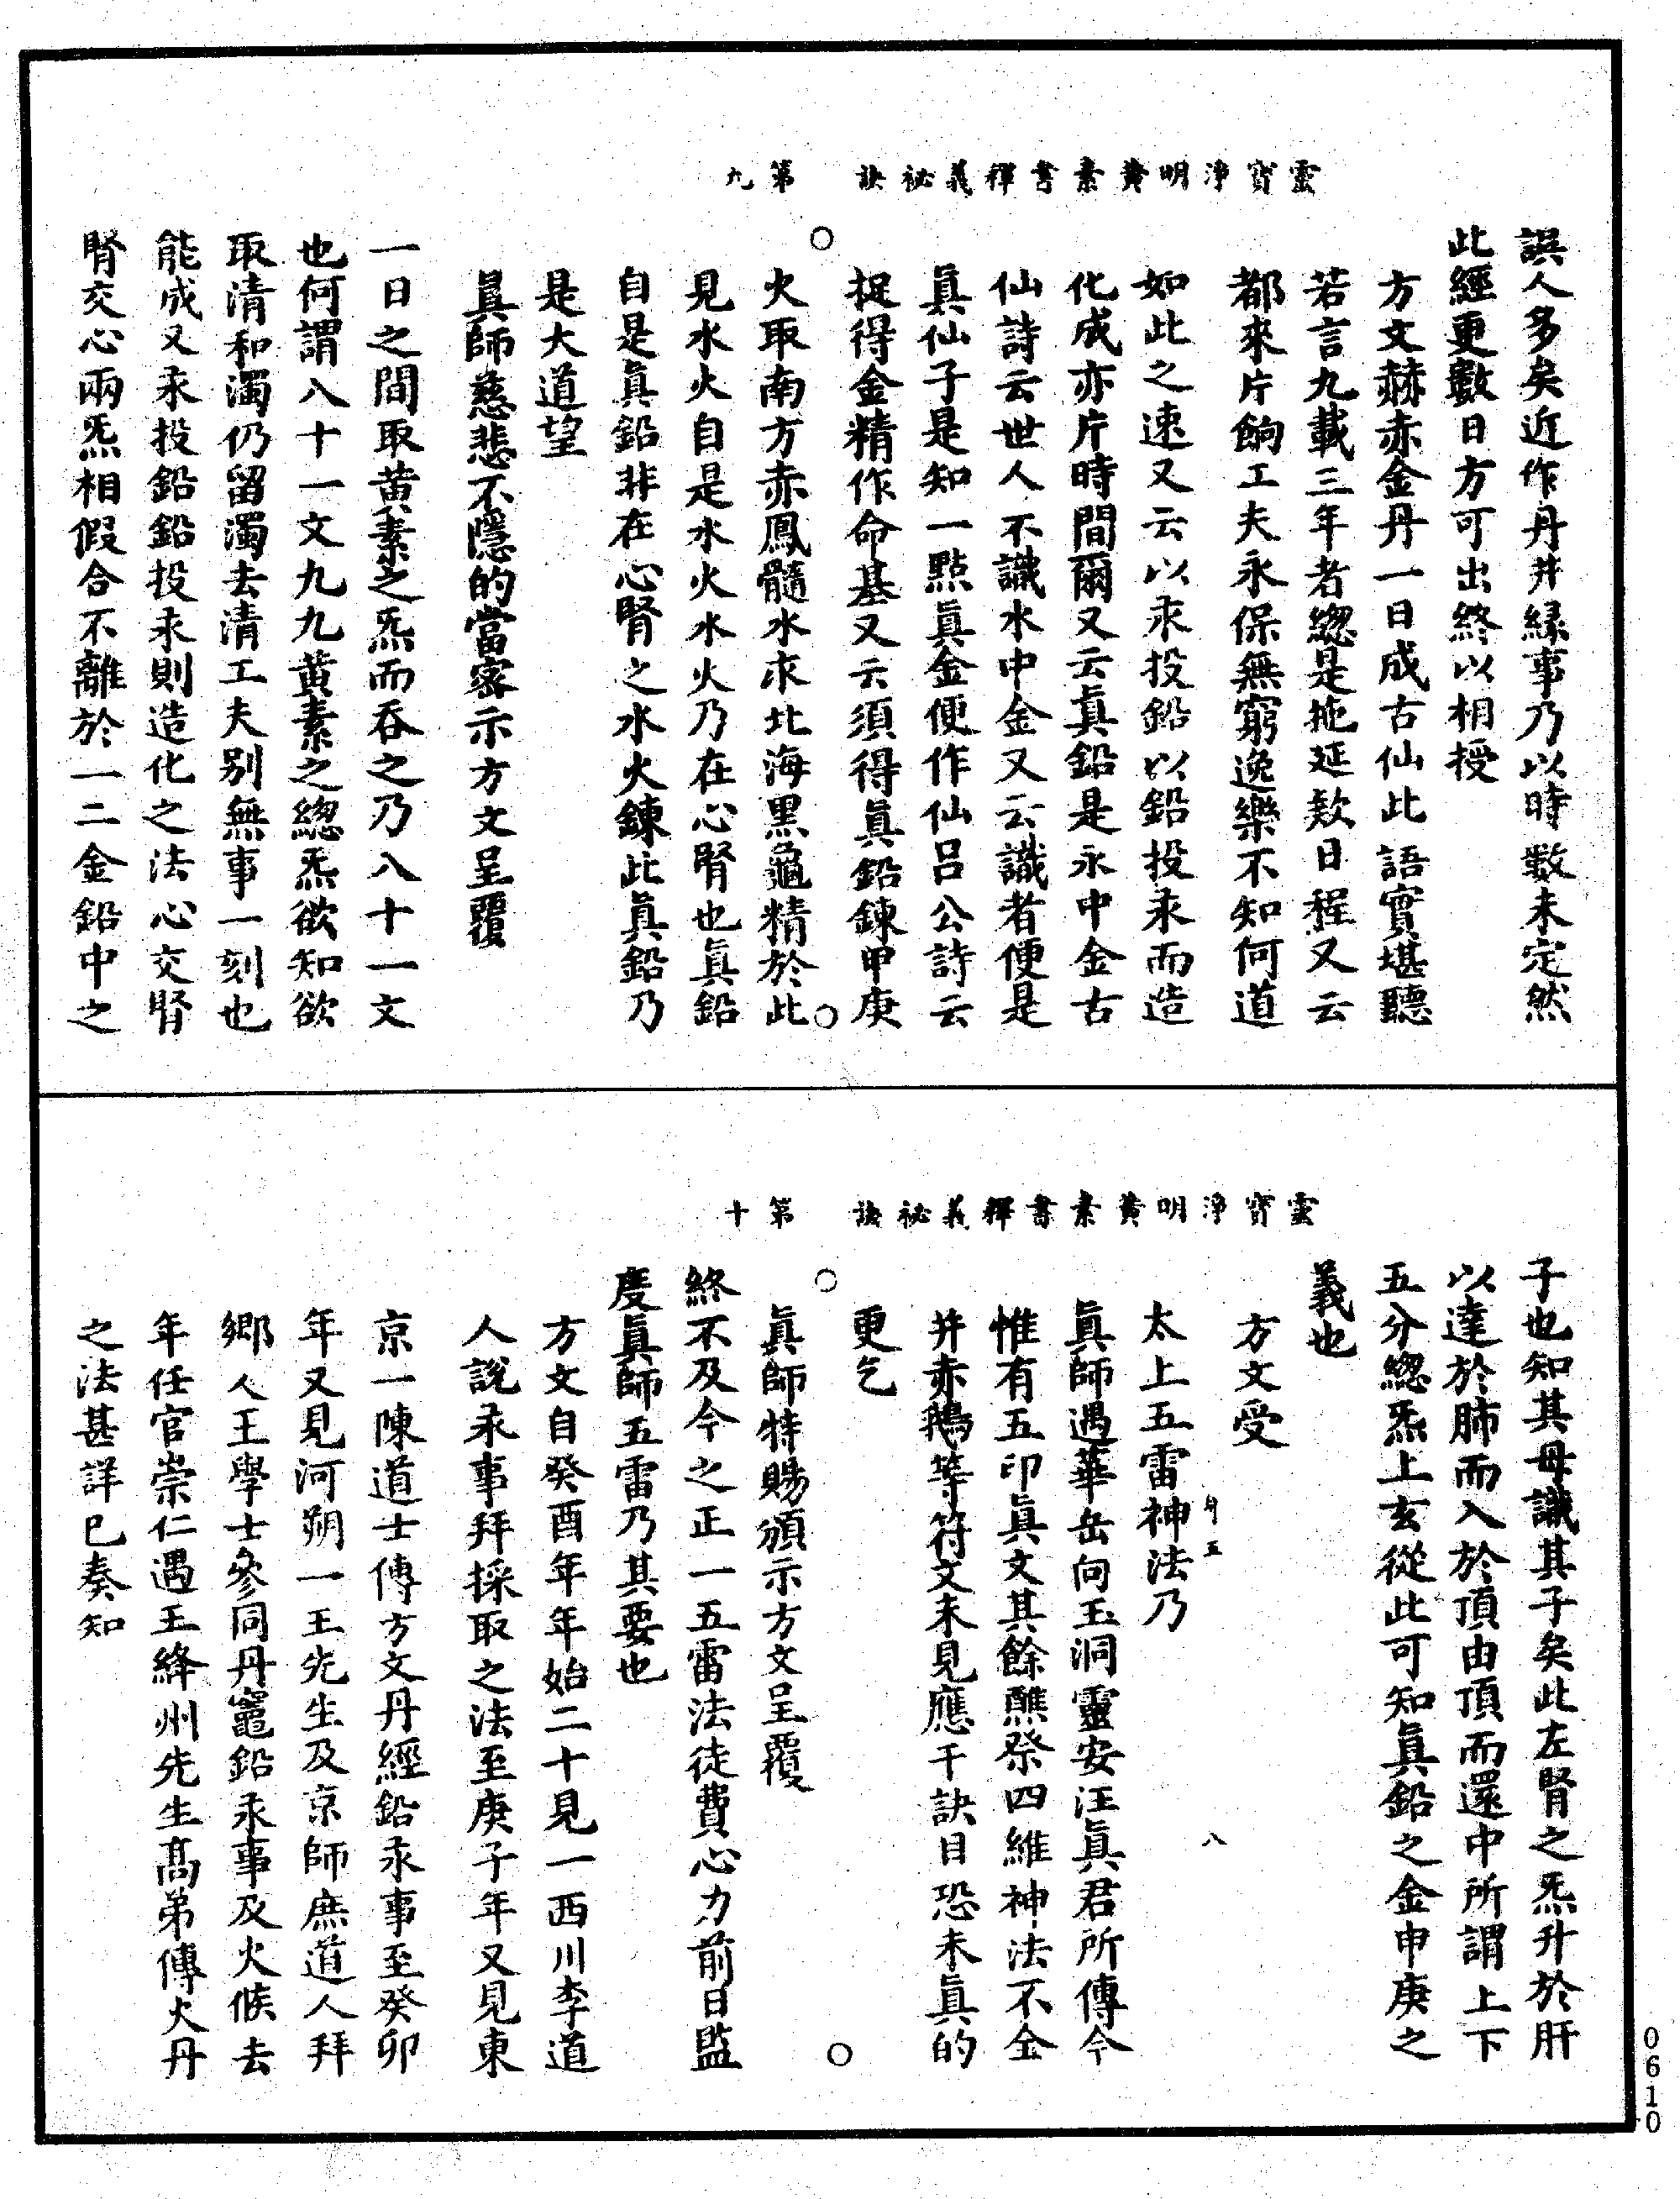 靈寶淨明黃素書釋義祕訣　第九
誤人多矣近作丹井緣事乃以時數未定然
此經更數日方可出終以相授
方文赫赤金丹一日成古仙此語實堪聽
若言九載三年者緫是拖延欵日程又云
都來片餉工夫永保無窮逸樂不知何道
如此之速又云以汞投鉛以鉛投汞而造
化成亦片時間爾又云眞鉛是水中金古
仙詩云世人不識水中金又云識者便是
眞仙子是知一點眞金便作仙呂公詩云
捉得金精作命基又云須得眞鉛鍊甲庚
火取南方赤鳳髓水求北海黑龜精於此
見水火自是水火水火乃在心腎也眞鉛
自是眞鉛非在心腎之水火鍊此眞鉛乃
是大道望
眞師慈悲不隱的當密示方文呈覆
一日之間取黃素之炁而吞之乃八十一文
也何謂八十一文九九黃素之緫炁欲知欲
取清和濁仍留濁去清工夫別無事一刻也
能成又汞投鉛鉛投汞則造化之法心交腎
腎交心兩炁相假合不離於一二金鉛中之
靈寶淨明黃素書釋義祕訣　第十
子也知其母識其子矣此左腎之炁升於肝
以達於肺而入於頂由頂而還中所謂上下
五分緫炁上玄從此可知眞鉛之金申庚之
義也
方文受
太上五雷神法乃
眞師遇華岳向玉洞靈安汪眞君所傳今
惟有五印眞文其餘醮祭四維神法不全
幷赤鵝等符文未見應干訣目恐未眞的
更乞
眞師特賜頒示方文呈覆
終不及今之正一五雷法徒費心力前日監
度眞師五雷乃其要也
方文自癸酉年年始二十見一西川李道
人說汞事拜採取之法至庚子年又見東
京一陳道士傳方文丹經鉛汞事至癸卯
年又見河朔一王先生及京師庶道人拜
鄉人王學士參同丹竈鉛汞事及火候去
年任官崇仁遇王絳州先生髙弟傳火丹
之法甚詳已奏知
八
0610